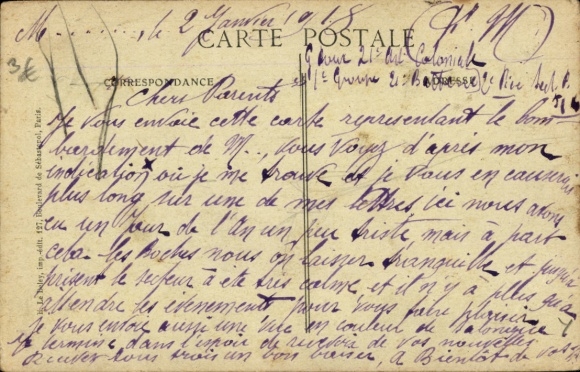 M......., le 2 Janvier 1918 F M
CARTE POSTALE
CORRESPONDANCE ADRESSE
3€
G Cour 21e Art Coloniale
1e Groupe 2e Batterie 2e Pièce Sect. P.
Chers Parents
Je vous envoie cette carte representant le bom
bardement de M..., vous voyez d'apres mon
indication x où je me trouve et je vous en causerai
plus long sur une de mes lettres, ici nous avons
eu un Jour de l'An un peu triste mais à part
cela les Boches nous on laisser tranquille et jusqu'a
présent le secteur à été très calme et il n'y à plus qu'a
attendre les evenements pour vous faire plaisir
je vous envoie aussi une vue en couleur de Salonique
je termine dans l'espoir de recevoir de vos nouvelles
Recever tous trois un bon baiser, A Bientôt de vos
Le Deley, imp.-édit., 127, Boulevard de Sébastopol, Paris.